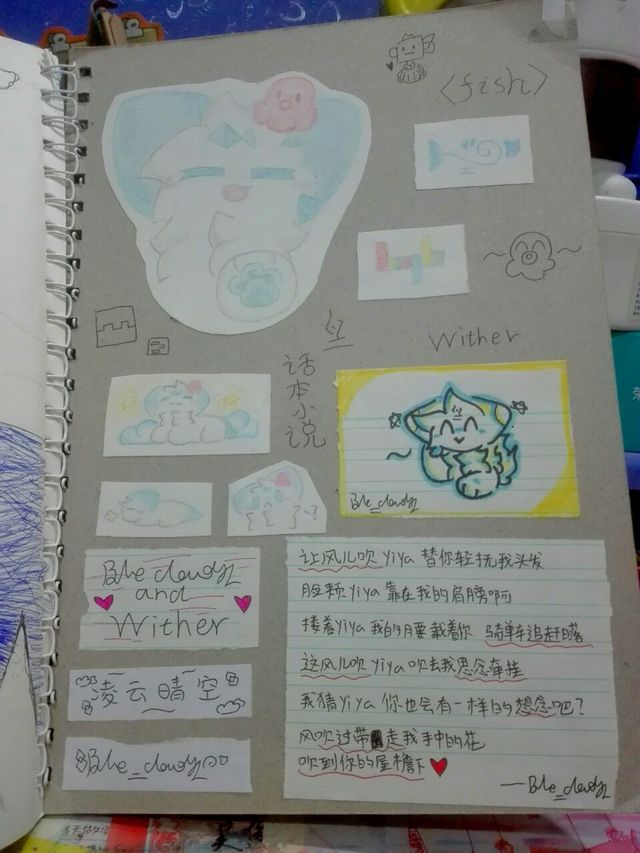 <fish>
鱼
Wither
话本小说
Ble_cloudyz
Ble cloudyz
and
Wither
凌云晴空
Ble_cloudyz
让风儿吹 yiya 替你轻抚我头发
脸颊 yiya 靠在我的肩膀啊
接着 yiya 我的腰 载着你 骑单车追赶晚霞
这风儿吹 yiya 吹去我思念牵挂
我猜 yiya 你也会有一样的想念吧?
风吹过带走我手中的花
吹到你的屋檐下
——Ble_cloudyz